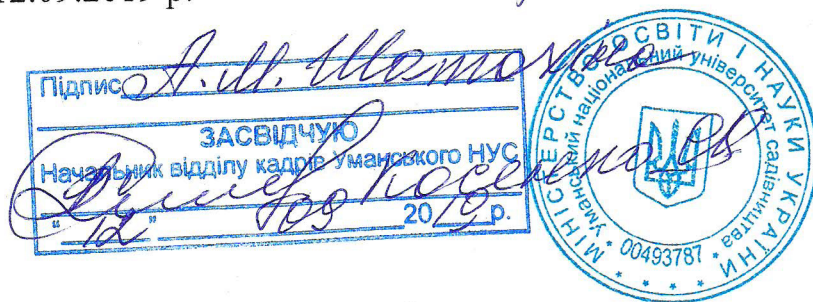 12.09.2019 р.
Підпис А.М. Шатохіна
ЗАСВІДЧУЮ
Начальник відділу кадрів Уманського НУС
Косенко
"12" 09 2019 р.
МІНІСТЕРСТВО ОСВІТИ І НАУКИ УКРАЇНИ
Уманський національний університет садівництва
* 00493787 *